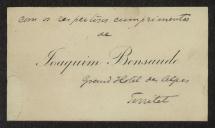 com os respeitosos cumprimentos
de
Joaquim Bensaude
Grand Hotel des Alpes
Territet